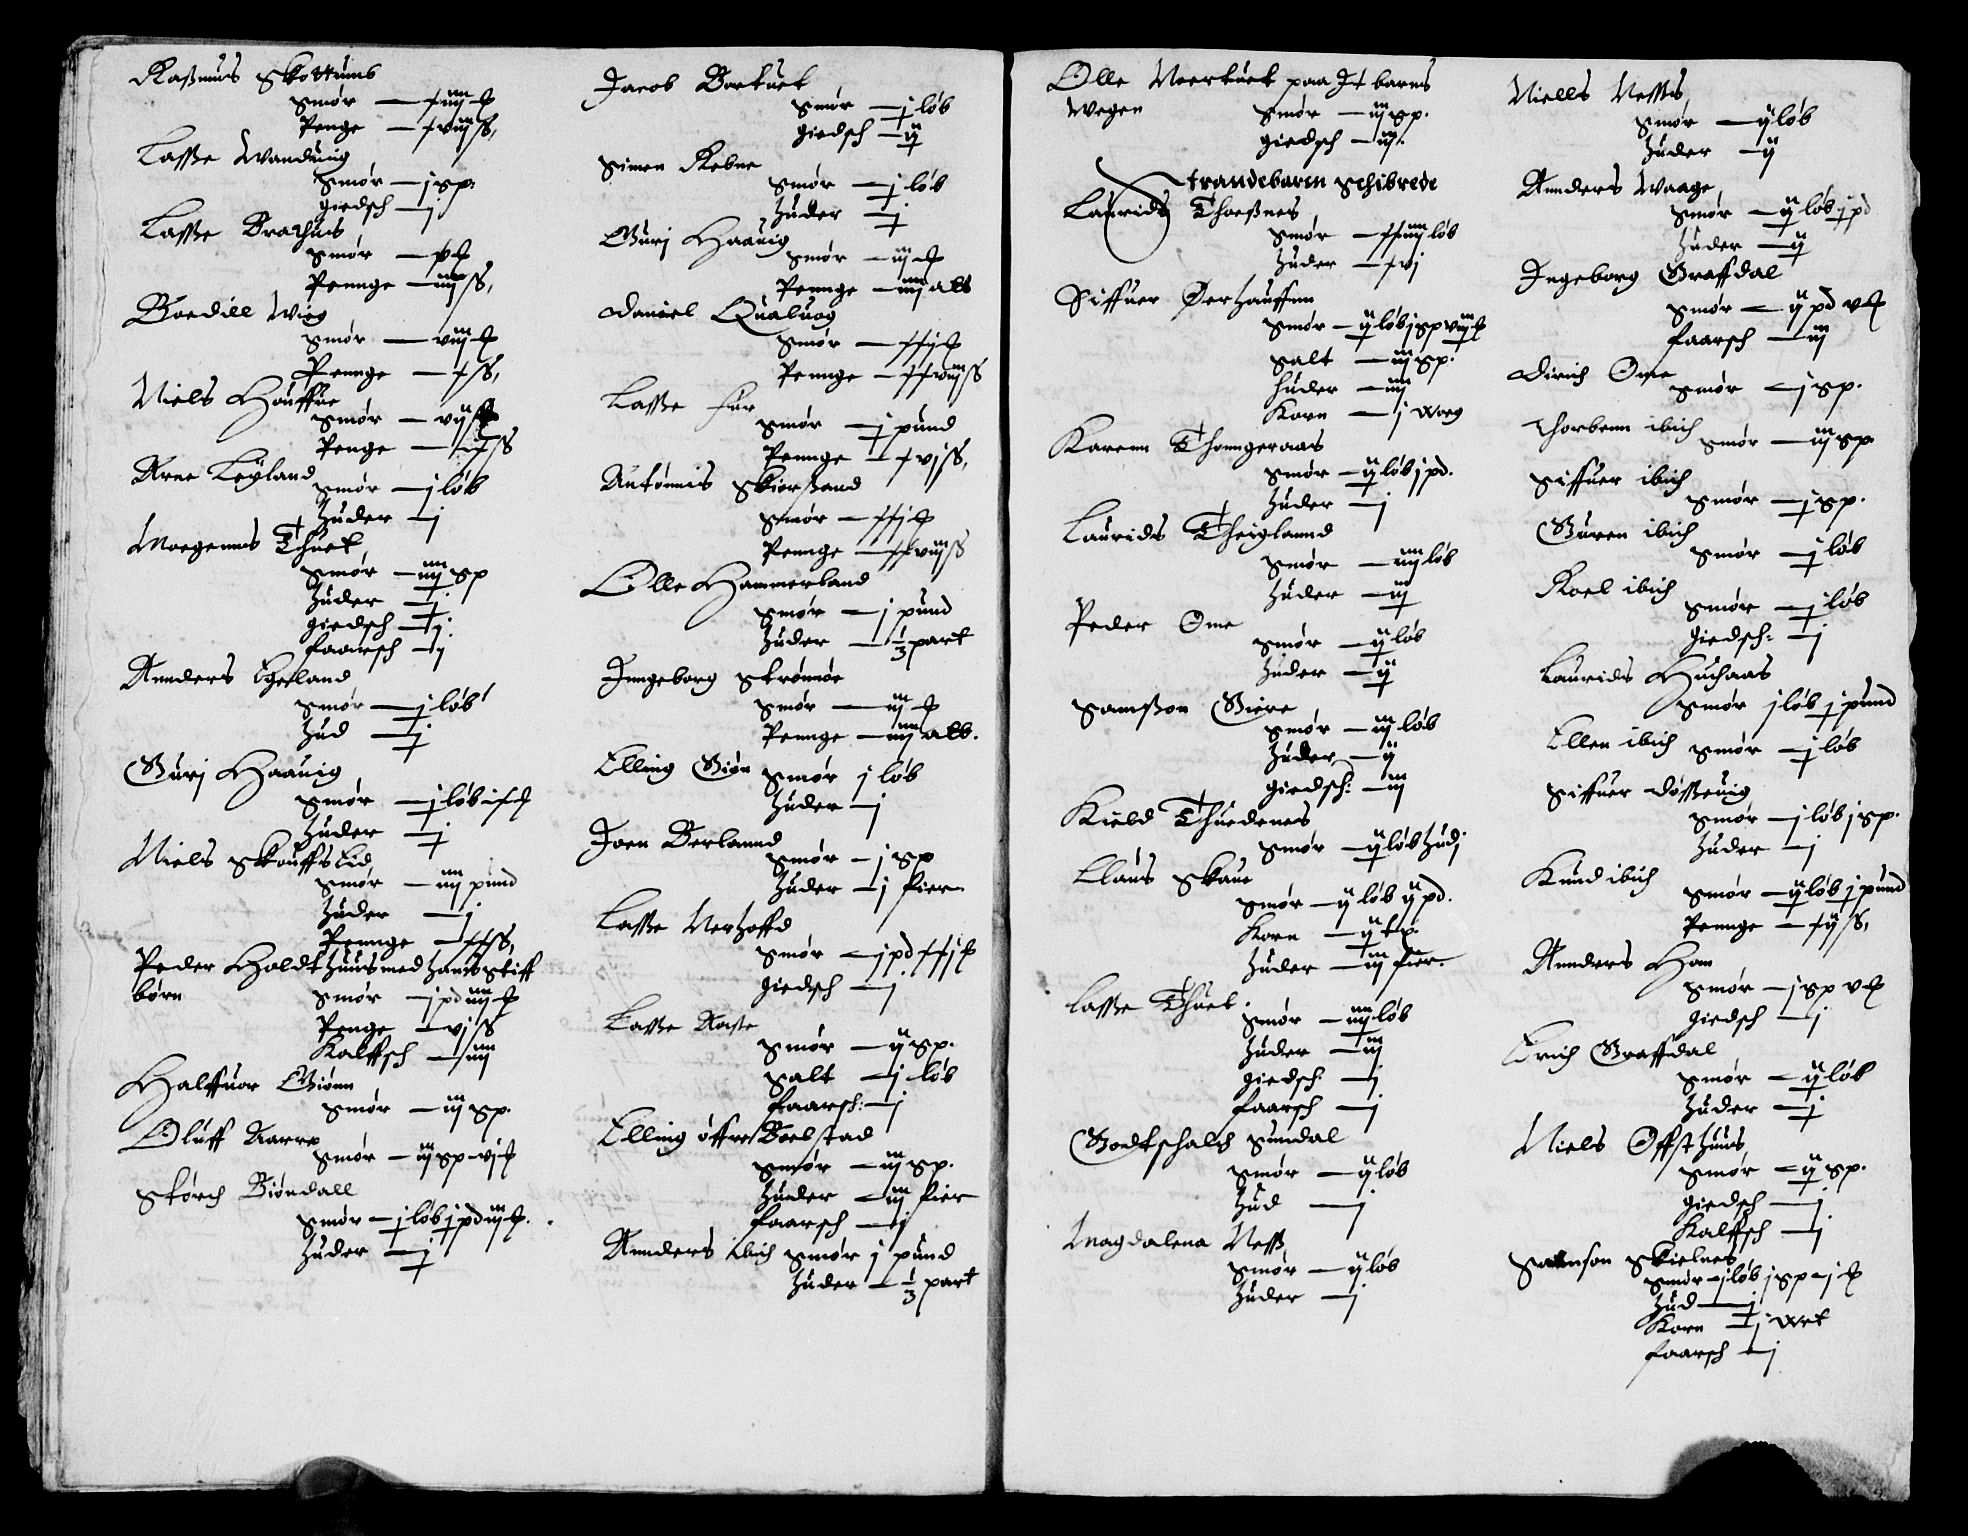 Rasmus Skottums
Smør — xiiij
Penge — xviij ß,
Lasse Wanduig
Smør — j sp:
giedsch — j
Lasse Brathus
Smør —
Pennge — iiij ß,
Boedill Wiig
Smør — viij
Pennge — x ß,
Niels Houffue
Smør — vij
Penge — ß
Arne Leÿland
Smør — j løb
Huder — j
Moegenns Thuet
Smør — iiij sp
Huder — j
giedsch — j:
faarsch — j
Annders Egeland
Smør — j løb
Hud — j
Gurj Haauig
Smør — j løb
Huder — j
Niels Skouffs Lid
Smør — iiij pund
Huder — j
Pennge — xx ß,
Peder Holdthuus med hans Stiff
børn Smør — j pd iiij
Penge — vj ß
Kalffsch — iiij
Halffuor Giønn
Smør — iij sp.
Oluff Aarre
Smør — iij sp vj
Størch Biøndall
Smør — j løb j pd iij
Huder — j
Jacob Bortuet
Smør — j løb
giedsch — ij
Simen Rebne
Smør — j løb
Huder — j
Gurj Haauig
Smør — iij
Pennge — iiij alb
Daniel Qualuog
Smør — xxj
Pennge — xxviij ß
Lasse Fur
Smør — j pund
Pennge — xvj ß,
Antonnis Skiorsand
Smør — xxj
Pennge — xxviij ß
Olle Hammerland
Smør — j pund
Huder — 1/3 part
Jnngeborg Strømøe
Smør — iij
Pennge — iiij alb.
Elling Giøn
Smør j løb
Huder — j
Joen Berlannd
Smør — j sp
Huder — j fier
Lasse Nerhoffd
Smør — j pd xxj
giedsch — j
Lasse Aaste
Smør — ij sp.
Salt — j løb
faarsch: — j
Elling øffre Boelstad
Smør — iij sp.
Huder — iij fier
faarsch — j
Annders ibich Smør j pund
Huder — 1/3 part
Olle Neertuet paa It barns
Wegen Smør — iij sp.
giedsch — iij.
Strandebarm Schibrede
Laurids Thoesnes
Smør — xxiiij løb
Huder — xvj
Siffuer Øerhauffnn
Smør — ij løb j sp viij
Salt — iij sp.
Huder — iiij
Korn — j woeg
Karenn Thonngeraas
Smør — ij løb j pd.
Huder — j
Laurids Theiglannd
Smør — iiij løb
Huder — iij
Peder Ome
Smør — ij løb
Huder — ij
Samsson Giere
Smør — iij løb
Huder — ij
giedsch: — iij
Kield Thuedenes
Smør — ij løb Hud j
Claus Skaue
Smør — ij løb ij pd.
Korn — ij
Huder — iij fier.
Lasse Thuet.
Smør — iiij løb
Huder — iij
giedsch — j
faarsch — j
Godtschalch Sundal
Smør — ij løb
Hud — j
Magdalena Ness
Smør — ij løb
Huder — j
Niells Ness
Smør — ij løb
Huder — ij
Annders Waage
Smør — ij løb j pd
Huder — ij
Jngeborg Graffdal
Smør — ij pd v
faarsch — iij
Dirich Ome
Smør — j sp.
Thorbenn ibich
Smør — iij sp
Siffuer ibich
Smør — j sp.
Guren ibich
Smør — j løb
Roel ibich
Smør — j løb
giedsch: — j
Laurids Huchaas
Smør j løb j pund
Ellen ibich Smør — j løb
Siffuer Døsseuig
Smør — j løb j sp.
Huder — j
Knud ibich
Smør — ij løb j pund
Pennge — xij ß,
Annders Ham
Smør — j sp v
giedsch — j
Erich Graffdal
Smør — ij løb
Huder — j
Niels Offsthuus
Smør — ij sp.
giedsch — j
Kalffsch — j
Samson Skielnes
Smør — j løb j sp — j
Hud — j
Korn — j wet
faarsch — j